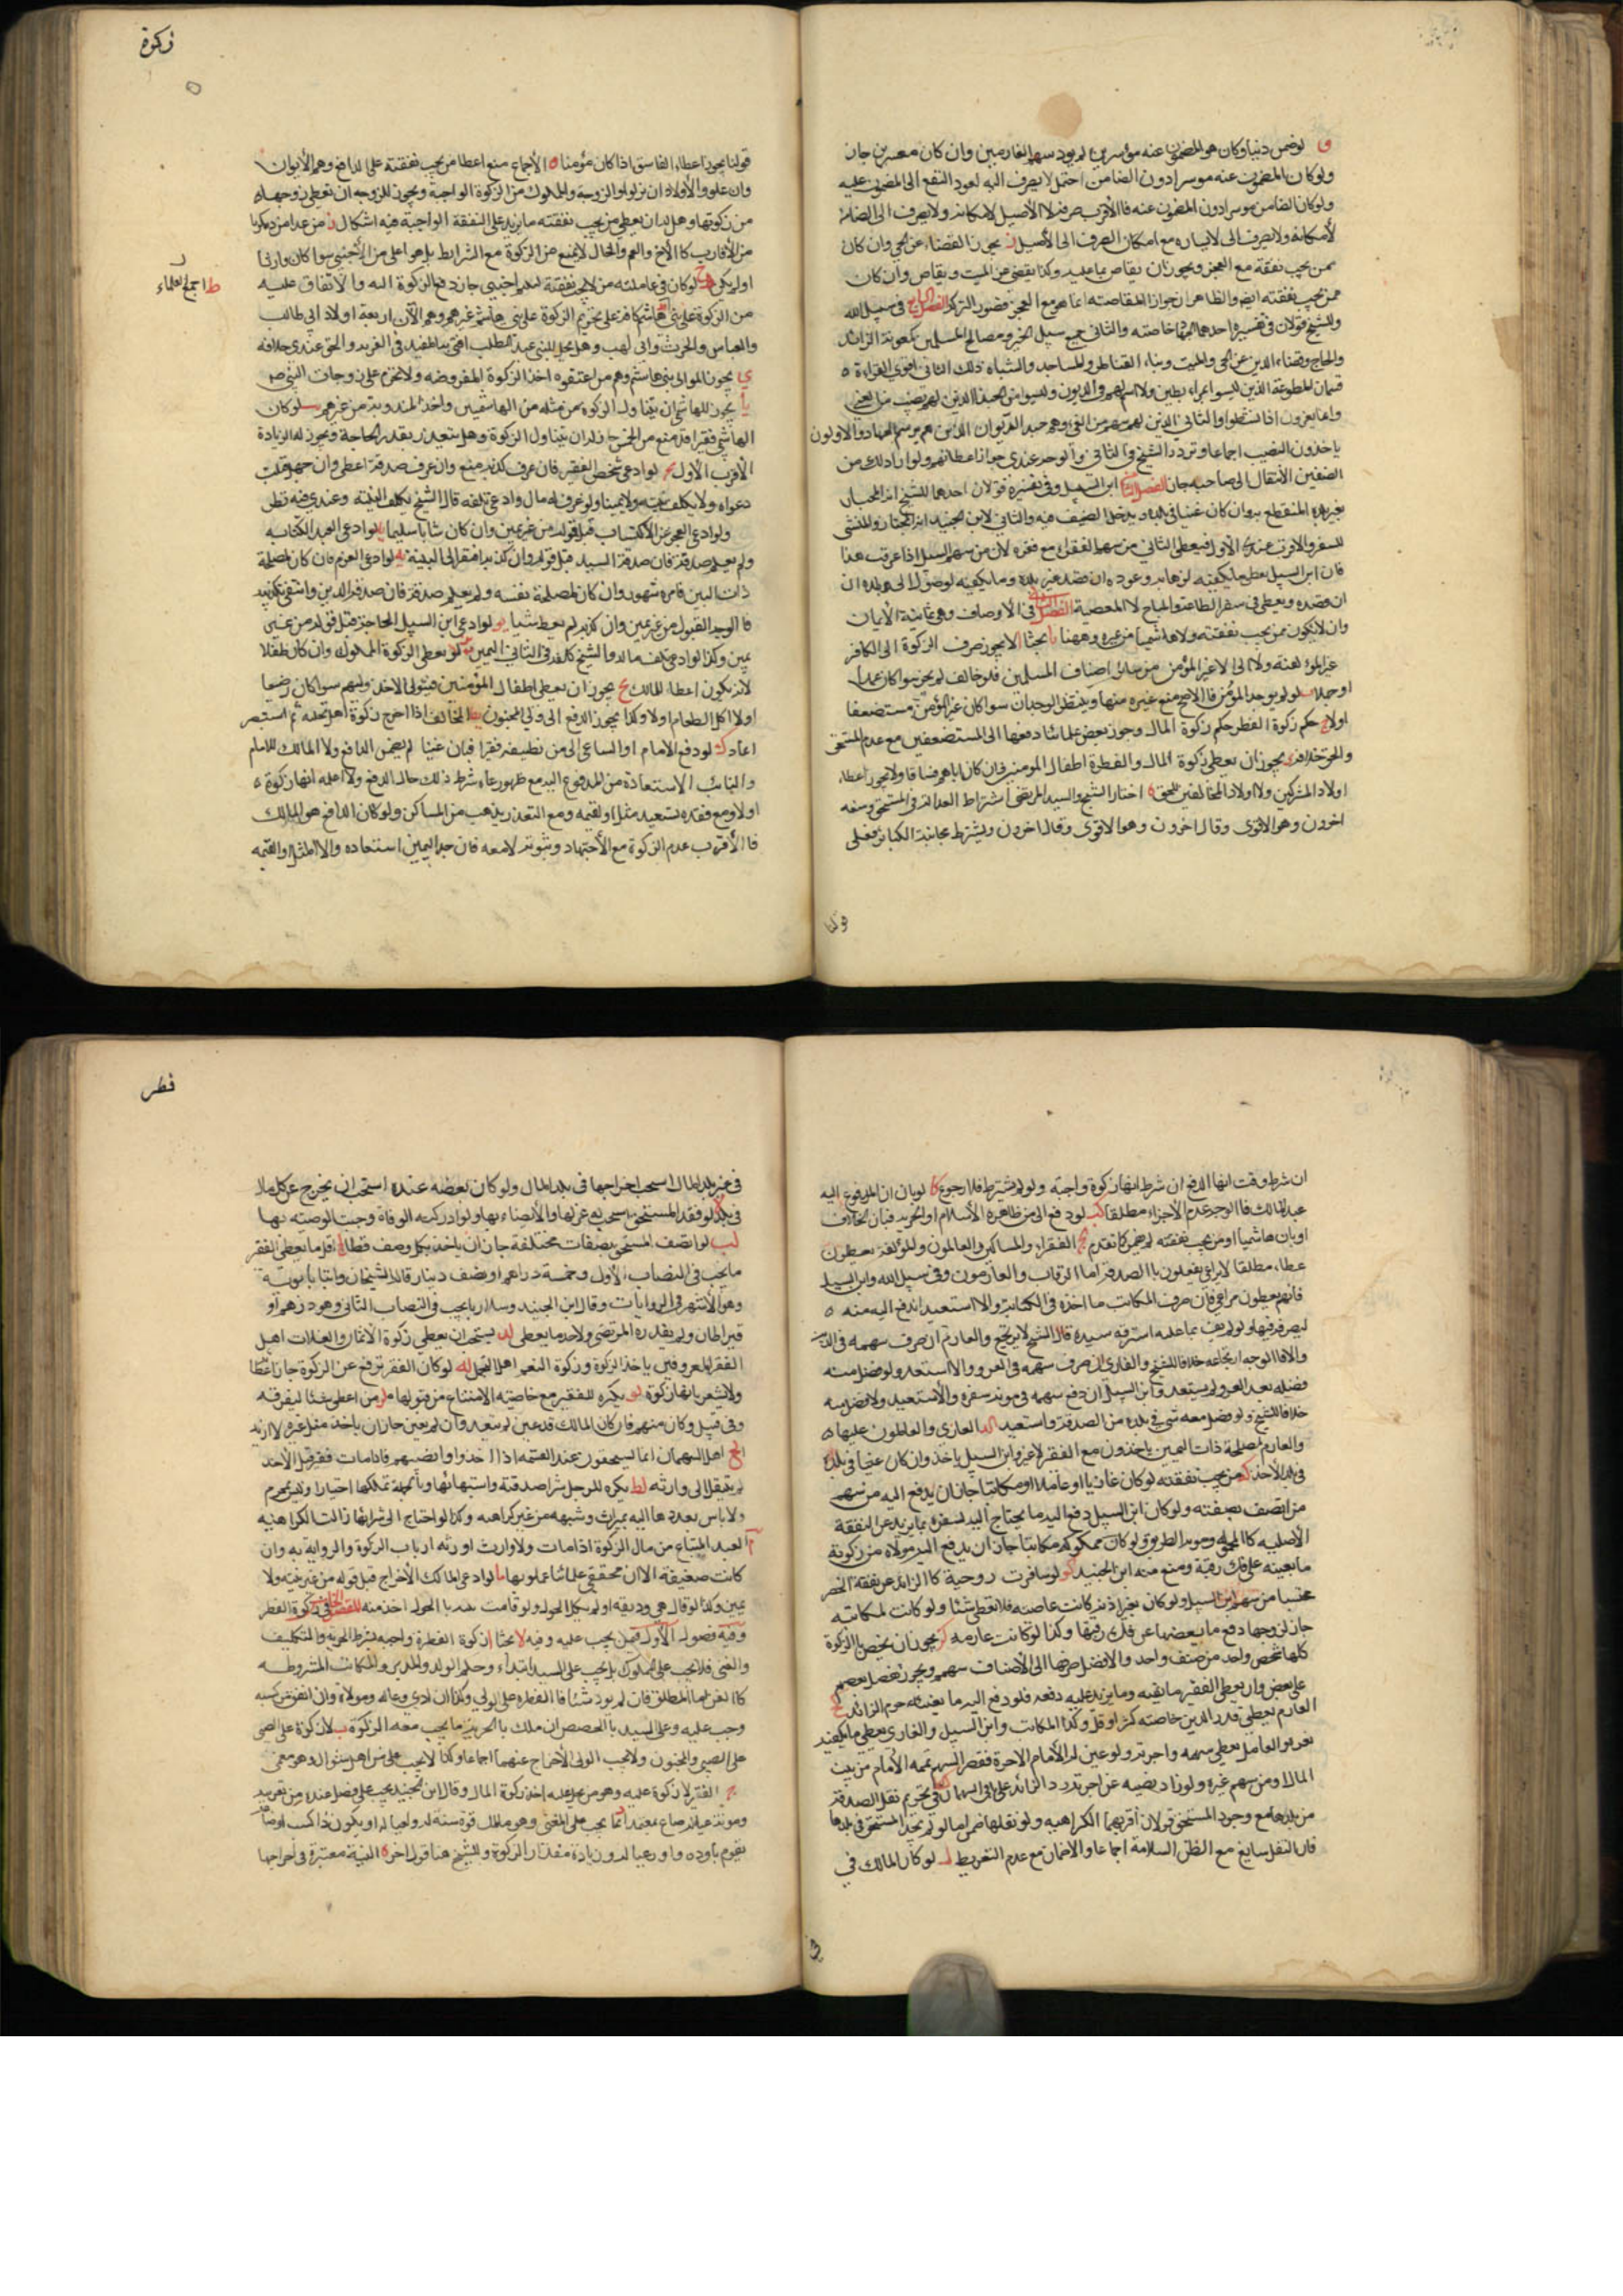 و لو ضمن دينا وكان هو المضمون عنه موسرين لم يؤد سهم الغارمين وان كان معسرين جاز
ولو كان المضمون عنه موسرا دون الضامن احتمل لا يصرف اليه لعود النفع الى المضمون عليه
ولو كان الضامن موسرا دون المضمون عنه فالأقرب صرفه لا الأصيل لامكانه ولا يصرف الى الضامن
لأمكانه ولا يصرف الى لايساره مع امكان الصرف الى الأصيل ز يجوز القضاء عن الحي وان كان
ممن يجب نفقة مع العجز ويجوز ان يقاص بما عليه وكذا يقضى عن الميت ويقاص وان كان
ممن يجب نفقته ايض والظاهر ان جواز المقاصة انما هو مع العجز قصور التركة الفصل السابع في سبيل الله
وللشيخ قولان في تفسيره احدهما الجهاد خاصته والثاني جميع سبيل الخير ومصالح المسلمين كمعونة الزائد
والحاج وقضاء الدين عن الحي والميت وبناء القناطر والمساجد واشباه ذلك الثاني اقوى الغزاة ه
قسمان المطوعة الذين ليسوا
وانما يغزون اذا نشطوا والثاني الذين لهم سهم من الفئ وهم جند الديوان الذين هم برسم الجهاد والاولون
ياخذون النصيب اجماعا وتردد الشيخ في الثاني والوجه عندي جواز اعطائهم ولو اراد ذلك من
الصنفين الانتقال الى صاحبه جاز الفصل الثامن ابن السبيل وفي تفسيره قولان احدهما للشيخ انه المجتاز
بغير بلده المنقطع به وان كان غنيا في بلده ويدخل الضيف فيه والثاني لابن الجنيد انه المجتاز والمنشئ
للسفر والاقرب عندي الأول فيعطى الثاني من سهم الفقراء مع فقره لان من سهم السبيل اذا عرفت هذا
فان ابن السبيل يعطى ما يكفيه لذهابه وعوده ان قصد غير بلده وما يكفيه لوصوله الى بلده ان
ان قصده ويعطى في سفر الطاعة والمباح لا المعصية الفصل في الأوصاف وهي ثمانية الأيمان
وان لا يكون ممن يجب نفقته ولا هاشميا من غيره وههنا بحثا الا يجوز صرف الزكوة الى الكافر
غير المؤلفة ولا الى لا غير المؤمن من سائر اصناف المسلمين فلو خالف لم يجز سواء كان عمدا
او جهلا ب لو لم يوجد المؤمن فالاصح منع غيره منها وينتظر الوجدان سواء كان غير المؤمن مستضعفا
اولا ج حكم زكوة الفطر حكم زكوة المال وجوز بعض علمائنا دفعها الى المستضعفين مع عدم المستحق
والحق خلافه د يجوز ان يعطى زكوة المال والفطرة اطفال المومنين وان كان اباهم فساقا ولا يجوز اعطاء
اولاد المشركين ولا اولاد المخالفين للحق ه اختار الشيخ والسيد المرتضى اشتراط العدالة في المستحق ومنعه
اخرون وهو الاقوى وقال اخرون وهو الاقوى وقال اخرون ويشترط مجانبة الكبائر فعلى
زكوة
قولنا يجوز اعطاء الفاسق اذا كان مؤمنا و الأجماع منع اعطاء من يجب نفقته على الدافع وهم الأبوان
وان علو والأولاد ان نزلوا والزوجة والمملوك من الزكوة الواجبة ويجوز للزوجه ان تعطى زوجها
من زكوتها وهل له ان يعطى من يجب نفقته ما يزيد على النفقة الواجبة فيه اشكال ز من عدا من ذكرنا
من الأقارب كالأخ والعم والخال لا يمنع من الزكوة مع الشرايط بل هو اعلى من الأجنبي سواء كان وارثا
او لم يكن ح لو كان في عاملته من لا يجب نفقته لمعلم اجنبي جاز دفع الزكوة اليه والانفاق عليه
ط اجمع العلماء
من الزكوة على تحريم الزكوة على بني هاشم من غيرهم وهم الآن اربعة اولاد ابي طالب
والعباس والحرث وابى لهب وهل يحل لبني عبد المطلب افتى به المفيد في الغريه والحق عندي خلافه
ي يجوز لموالى بني هاشم وهم من اعتقوه اخذ الزكوة المفروضه ولا تحرم على زوجات النبي ص
يا يجوز للهاشمي ان يتناول الزكوة ممن مثله من الهاشميين واخذ المندوبة من غيرهم يب لو كان
الهاشمي فقيرا قد منع من الخمس جاز له ان يتناول الزكوة وهل يتقدر بقدر الحاجة ويجوز له الزيادة
الأقرب الأول يج لو ادعى شخص الفقر فان عرف كذبه منع وان عرف صدقة اعطى وان جهل قبلت
دعواه ولا يكلف بينة ولا يمينا ولو عرف له مال وادعى تلفه قال الشيخ يكلف البينة وعندي فيه نظر
ولو ادعى العجز عن الاكتساب قبل قوله من غير يمين وان كان شابا سليما يد لو ادعى العبد الكتابه
ولم يعلم صدقه فان صدقه السيد قبل قوله وان كذبه افتقر الى البينة يه لو ادعى الغرم فان كان لمصلحة
ذات البين فامره مشهور وان كان لمصلحة نفسه ولم يعلم صدقه فان صدقه الدين وانتفى تكذيبه
فالوجه القبول من غير يمين وان كذبه لم يعط شيئا يو لو ادعى ابن السبيل الحاجة قبل قوله من غير
يمين وكذا لو ادعى تلف ماله والشيخ كلفه في الثاني اليمين يز لو يعطى الزكوة المملوك وان كان طفلا
لانه يكون اعطاء للمالك يح يجوز ان يعطى اطفال المؤمنين فيتولى الاخذ وليهم سواء كان رضيعا
اولا اكل الطعام اولا وكذا يجوز الدفع الى ولي المجنون يط المخالف اذا اخرج زكوة اهل نحلته ثم استبصر
اعاد ك لو دفع الامام او الساعى الى من نظنه فقيرا فبان غنيا لم يضمن الدافع ولا المالك للامام
والنائب الاستعادة من المدفوع اليه مع ظهوره سواء شرط ذلك حال الدفع ولا اعلمه انها زكوة
اولا ومع فقده يستعيد مثله او القيمه ومع التعذر يذهب من المساكن ولو كان الدافع هو المالك
فالأقرب عدم الزكوة مع الأجتهاد وثبوته لا معه فان وجد اليمين استعاده والا المثل او القيمه
ان شرط وقت انها الدفع ان شرط انها زكوة واجبة ولو لم يشترط فلا رجوع كا لو بان ان المدفوع اليه
عبد المالك فالوجه عدم الأجزاء مطلقا كب لو دفع الى من ظاهره الأسلام او الحريه فبان الخلاف
او بان هاشميا او من يجب نفقته لم يضمن كما تقدم كج الفقراء والمساكين والعاملون والمؤلفة يعطون
عطاء مطلقا لا يراعى ما يفعلون بالصدقة اما الرقاب والغارمون وفي سبيل الله وابن السبيل
فانهم يعطون مراعى فان صرف المكاتب ما اخذه في الكتابة والا استعيد اندفع اليه منه ه
ليصرفه فيها ولو لم يف بما عليه استرقه سيده قال الشيخ لا يرتجع والغارم ان صرف سهمه في الدين
والا فالوجه ارتجاعه خلافا للشيخ والغازى ان صرف سهمه في الغزو والا استعيد ولو فضل منه
فضله بعد الغزو لم يستعد وابن السبيل ان دفع سهمه في مونة سفره والا استعيد ولا فضل منه
خلافا للشيخ ولو فضل معه شئ في بلده من الصدقة واستعيد كد الغازي والعاملون عليها ه
والغارم لمصلحة ذات البين ياخذون مع الفقر لا غير وابن السبيل ياخذ وان كان غنيا في بلده
في بلد الأخذ كه من يجب نفقته لو كان غازيا او عاملا او مكاتبا جاز ان يدفع اليه من سهم
من اتصف بصفته ولو كان ابن السبيل دفع اليه ما يحتاج اليه لسفره بما يزيد عن النفقة
الأصليه كالحموله ومونة الطريق ولو كان مملوكه مكاتبا جاز ان يدفع اليه مولاه من زكوته
ما يعينه على فك رقبة ومنع منه ابن الجنيد كو لو سافرت زوجية كا الزائد عن نفقة الحضر
محتسبا من سهم ابن السبيل ولو كان بغير اذنه كانت عاصيه فلا تعطى شيئا ولو كانت لمكاتبه
جاز لزوجها دفع ما يعينها على فك رقبتها وكذا لو كانت غارمه كز يجوز ان يخص بالزكوة
كلها شخص واحد من صنف واحد والافضل صرفها الى الأصناف سهم ويجوز تفضل بعضهم
على بعض وان يعطى الفقير ما يغنيه وما يزيد عليه دفعه فلو دفع اليه ما يغنيه حرم الزائد كح
الغارم يعطى قدر الدين خاصته كثر او قل وكذا المكاتب وابن السبيل والغازى يعطى ما يكفيه
لغزوه والعامل يعطى سهمه واجرته ولو عين له الأمام الاجرة فقصر السهم تممه الأمام من بيت
المال او من سهم غيره ولو زاد نصيبه عن اجرته رد الزائد على باقى السهمان كط في تحريم نقل الصدقة
من بلدها مع وجود المستحق قولان اقربهما الكراهيه ولو نقلها ضمن اما لو لم يجد المستحق في بلدها
فان النقل سايغ مع الظن السلامة اجماعا والاضمان مع عدم التفريط ل لو كان المالك في
فطر
في غير بلد المال استحب اخراجها في بلد المال ولو كان بعضه عنده استحب ان يخرج عن كل ملا
في بلده لا لو فقد المستحق استحب له عزلها والأيصاء بها ولو ادركته الوفاة وجبت الوصيه بها
لب لو اتصف المستحق بصفات مختلفة جاز ان ياخذ بكل وصف قسطا لج اقل ما يعطى الفقير
ما يجب في النصاب الأول وخمسة دراهم او نصف دينار قاله الشيخان وابنا بابويه
وهو الأشهر في الروايات وقال ابن الجنيد وسلار ما يجب في النصاب الثاني وهو درهم او
قيراطان ولم يقدره المرتضى ولاحد ما يعطى لد يستحب ان يعطى زكوة الأثمار والغلات اهل
الفقر المعروفين باخذ الزكوة وزكوة النعم اهل التجمل له لو كان الفقير يترفع عن الزكوة جاز اعطاؤ
ولا يشعر بانها زكوة لو يكره للفقير مع خاصيته الامتناع من قبولها لز من اعطى شيئا ليفرقه
وفي قبيل وكان منهم فان كان المالك قد عين لم يتعد وان لم يعين جاز ان ياخذ مثل غيره لا ازيد
لح اهل السهمان انما يستحقون عند القسمه اذا اخذوا وانصبهم فاذا مات فقير قبل الأخذ
لم ينتقل الى وارثه لط يكره للرجل شراء صدقته واستيهابها وبالجمله تملكها اختيارا وليس بمحرم
ولا باس بعددها اليه بميراث وشبهه من غير كراهه وكذا لو احتاج الى شرائها زالت الكراهيه
م العبد المبتاع من مال الزكوة اذا مات ولا وارث اورثه ارباب الزكوة والرواية به وان
كانت ضعيفة الا ان محققي علمائنا عملوا بها ما لو ادعى المالك الأخراج قبل قوله من غير بينه ولا
يمين وكذا لو قال هي وديعه او لم يكمل الحول ولو قامت البينة بالحول اخذ منه المقصد الخامس في زكوة الفطر
وفيه فصول الأول فيمن يجب عليه وفيه بحثا ا زكوة الفطرة واجبه بشرط الحرية والتكليف
والغنى فلا يجب على المملوك بل يجب على السيد ابتداء وحكم الولد والمدبر والمكاتب المشروطه
كالقن اما المطلق فان لم يود شيئا فالفطره على المولى وكذا ان ادى وعاله ومولاه وان انفق من كسبه
وجب عليه وعلى السيد بالحصص ان ملك بالحرية ما يجب معه الزكوة ب لا زكوة على الصبي
على الصبي والمجنون ولا يجب الولى الأخراج عنهما اجماعا وكذا لا يجب على من اهل شوال وهو مغمى
ج الفقير لا زكوة عليه وهو من يحل عليه اخذ زكوة المال وقال ابن الجنيد يجب على من فضل عنده من
ومونة عياله صاع نعم د انما يجب على الغنى وهو مالك قوة سنة له ولعياله او يكون ذا كسب او صناعة
يقوم باوده واود عياله وزيادة مقدار الزكوة وللشيخ هنا قول اخر ه النية معتبرة في اخراجها